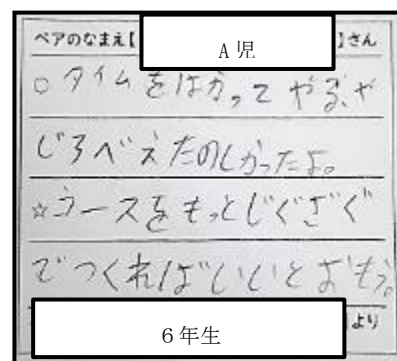 ペアのなまえ【 A児 】さん
○タイムをはかってやる、や
じろべえたのしかったよ。
☆コースをもっとじぐざぐ
でつくればいいとおもう。
6年生 より